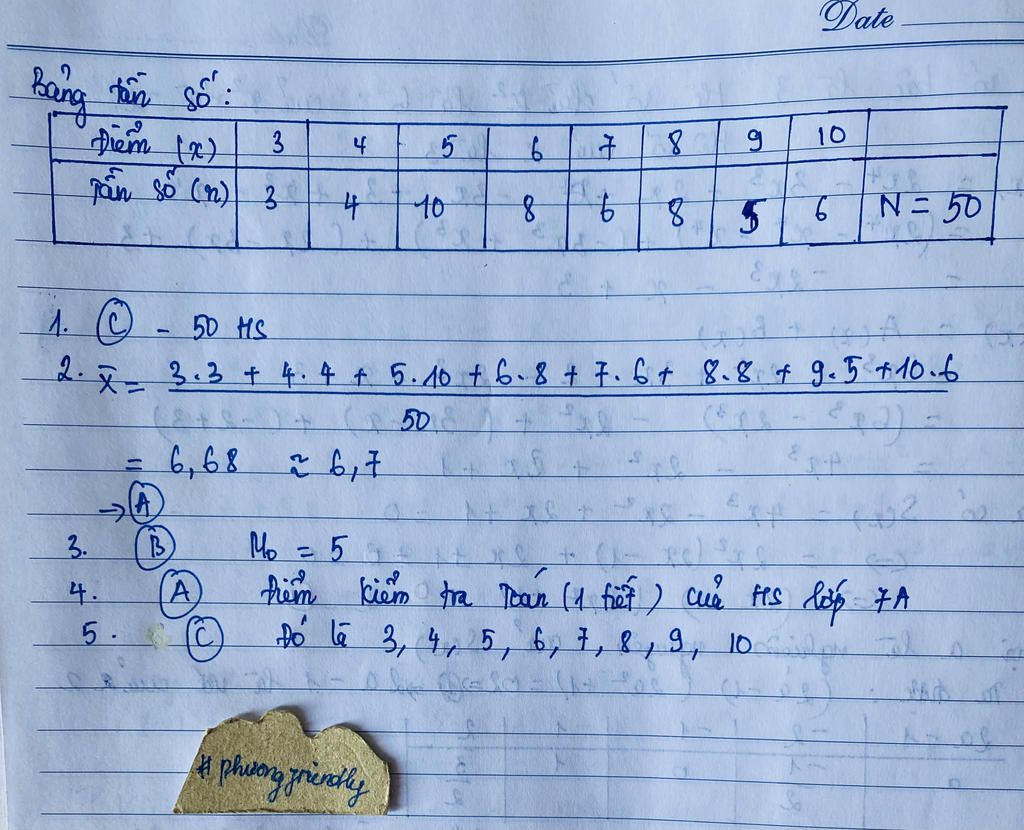 Date
Bảng tần số:
Điểm (x) 3 4 5 6 7 8 9 10
Tần số (n) 3 4 10 8 6 8 5 6 N = 50
1. C - 50 HS
2. X̄ = 3.3 + 4.4 + 5.10 + 6.8 + 7.6 + 8.8 + 9.5 + 10.6
50
= 6,68 ≈ 6,7
→ A
3. B M₀ = 5
4. A Điểm kiểm tra Toán (1 tiết) của HS lớp 7A
5. C Đó là 3, 4, 5, 6, 7, 8, 9, 10
# phuongfriendly